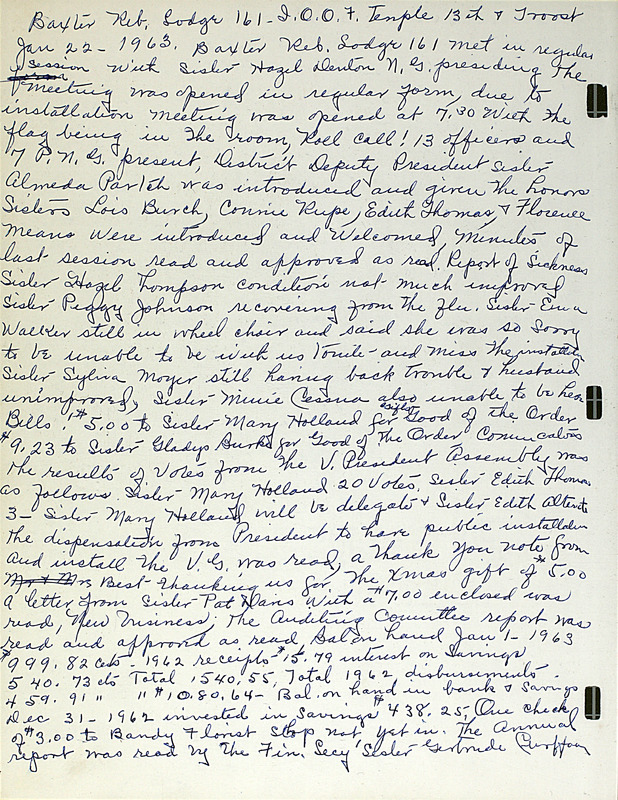 Baxter Reb. Lodge 161 - I.O.O.F. Temple 13th & Troost
Jan 22 - 1963. Baxter Reb. Lodge 161 met in regular
session With Sister Hazel Denton N.G. presiding The
meeting was opened in regular form, due to
installation meeting was opened at 7,30 With the
flag being in The room, Roll call! 13 officers and
7 P.N.Gs, present, District Deputy President Sister
Almeda Parish was introduced and given The honors
Sisters Lois Burch, Connie Rupe, Edith Thomas, & Florence
Means were introduced and Welcomed, Minutes of
last session read and approved as read. Report of Sickness
Sister Hazel Thompson condition not much improved
Sister Peggy Johnson recovering from The flu. Sister Emma
Walker still in wheel chair and said she was so Sorry
to be unable to be with us Tonite - and miss The installation
Sister Sylvia Moyer still having back trouble & husband
unimproved, Sister Cessna also unable to be here
Bills! $5.00 to Sister Mary Holland for Good of the Order
$9.23 to Sister Gladys Burks for Good of The Order
The results of Votes from The V. President Assembly was
as follows. Sister Mary Holland 20 Votes, Sister Edith Thomas
3 - Sister Mary Holland will be delegate & Sister Edith Alternate
The dispensation from President to have public installation
and install The V.G. was read, a Thank You note from
Mrs Best Thanking us for The Xmas gift of $5.00
A letter from Sister Pat Davis With a $7.00 enclosed was
read, New Business; The Auditing Committee report was
read and approved as read, Bal on hand Jan 1 - 1963
$999.82 cts - 1962 receipts $15.79 interest on Savings
540.73 cts Total 1540,55, Total 1962 disbursments.
459.91 " " " $1080.64 - Bal. on hand in bank & Savings
Dec 31 - 1962 invested in Savings $438.25, One check
of $3.00 to Bandy Florist Shop not yet in. The Annual
report was read by The Fin. Secy Sister Gertrude